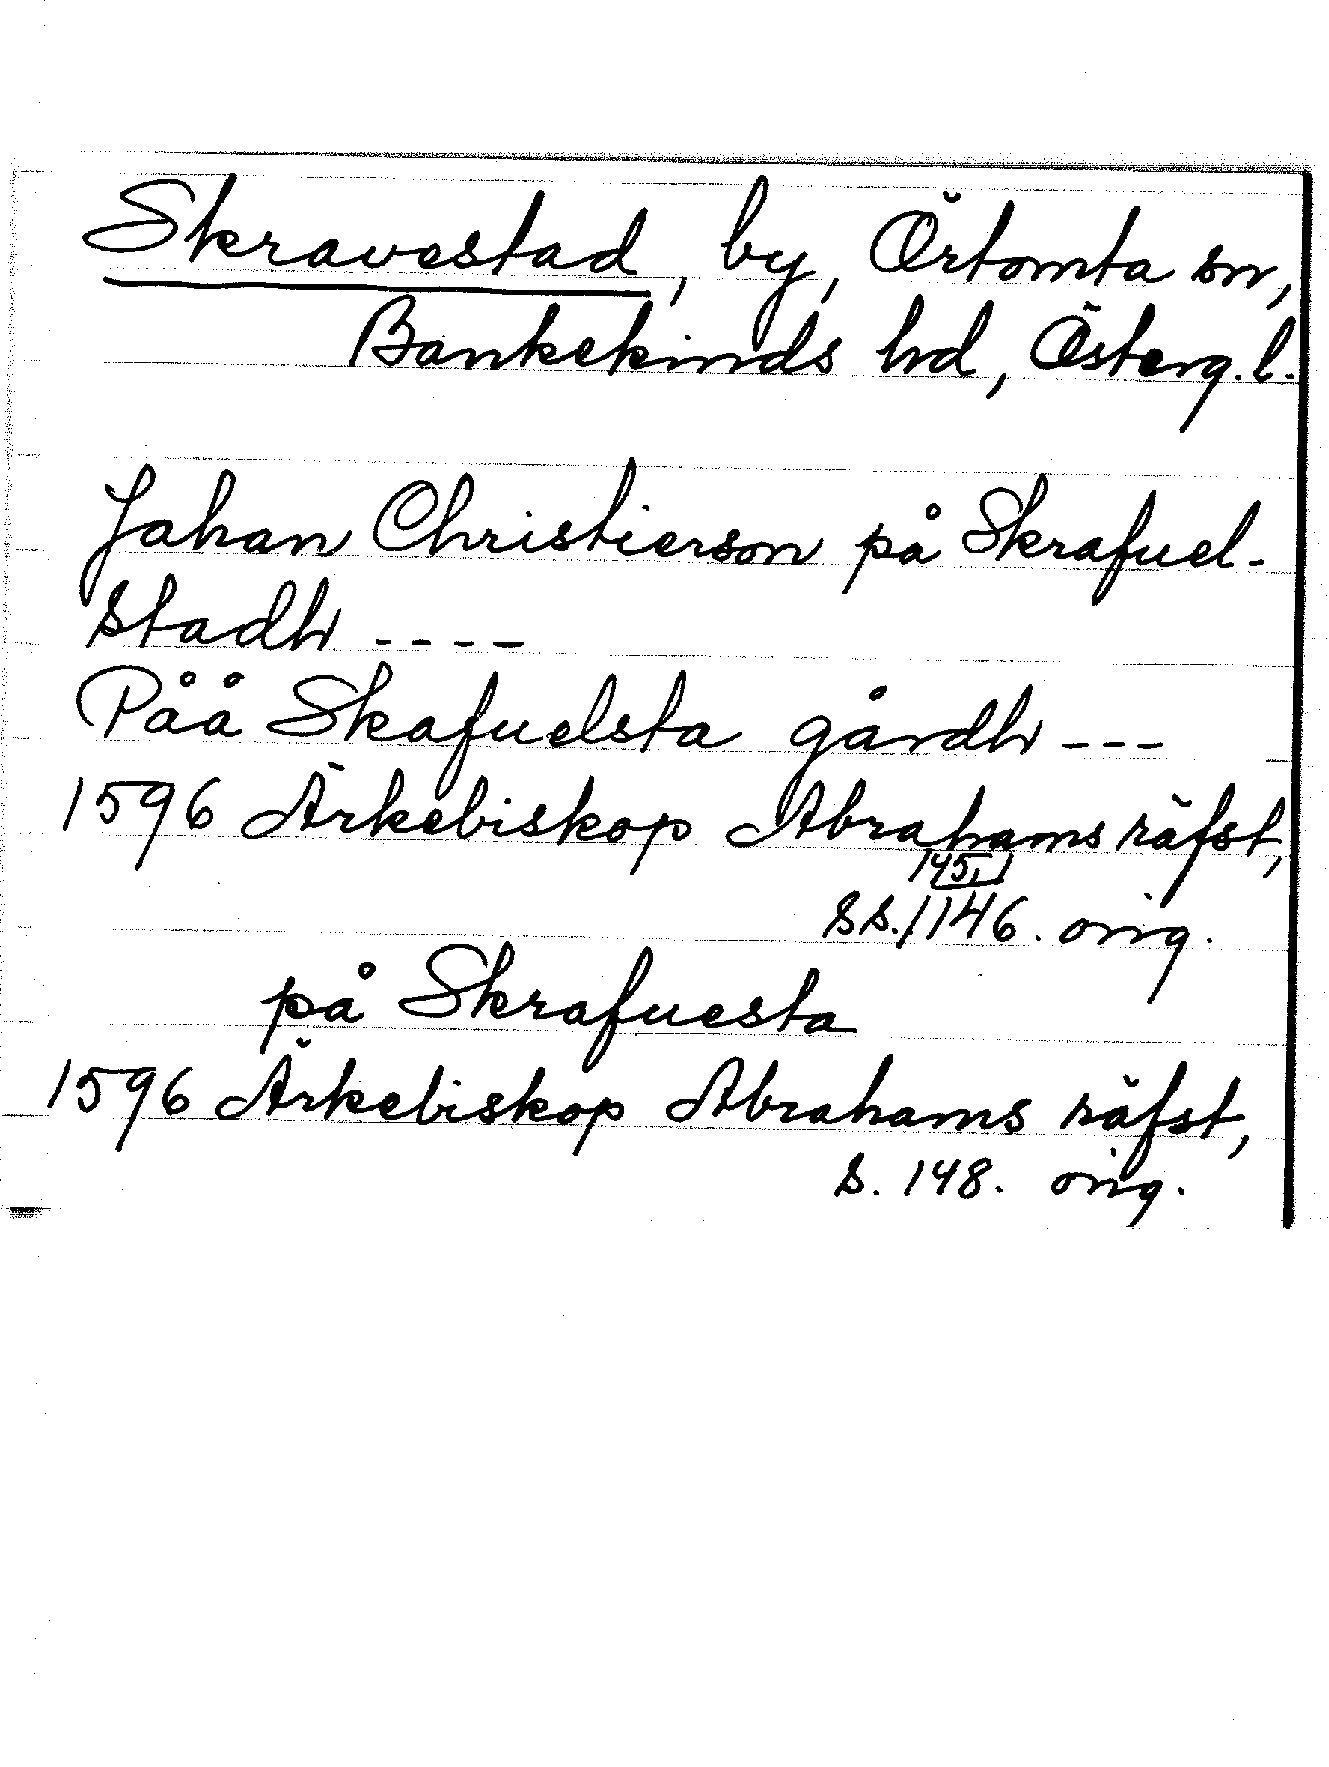 Skravestad, by, Örtomta sn,
Bankekinds hd, Österg.l.
Johan Christierson på Skrafuel-
stadh ----
Påå Skafuelsta gårdh ---
1596 Ärkebiskop Abrahams räfst,
ss. 145, 146. orig.
på Skrafuesta
1596 Ärkebiskop Abrahams räfst,
s. 148. orig.